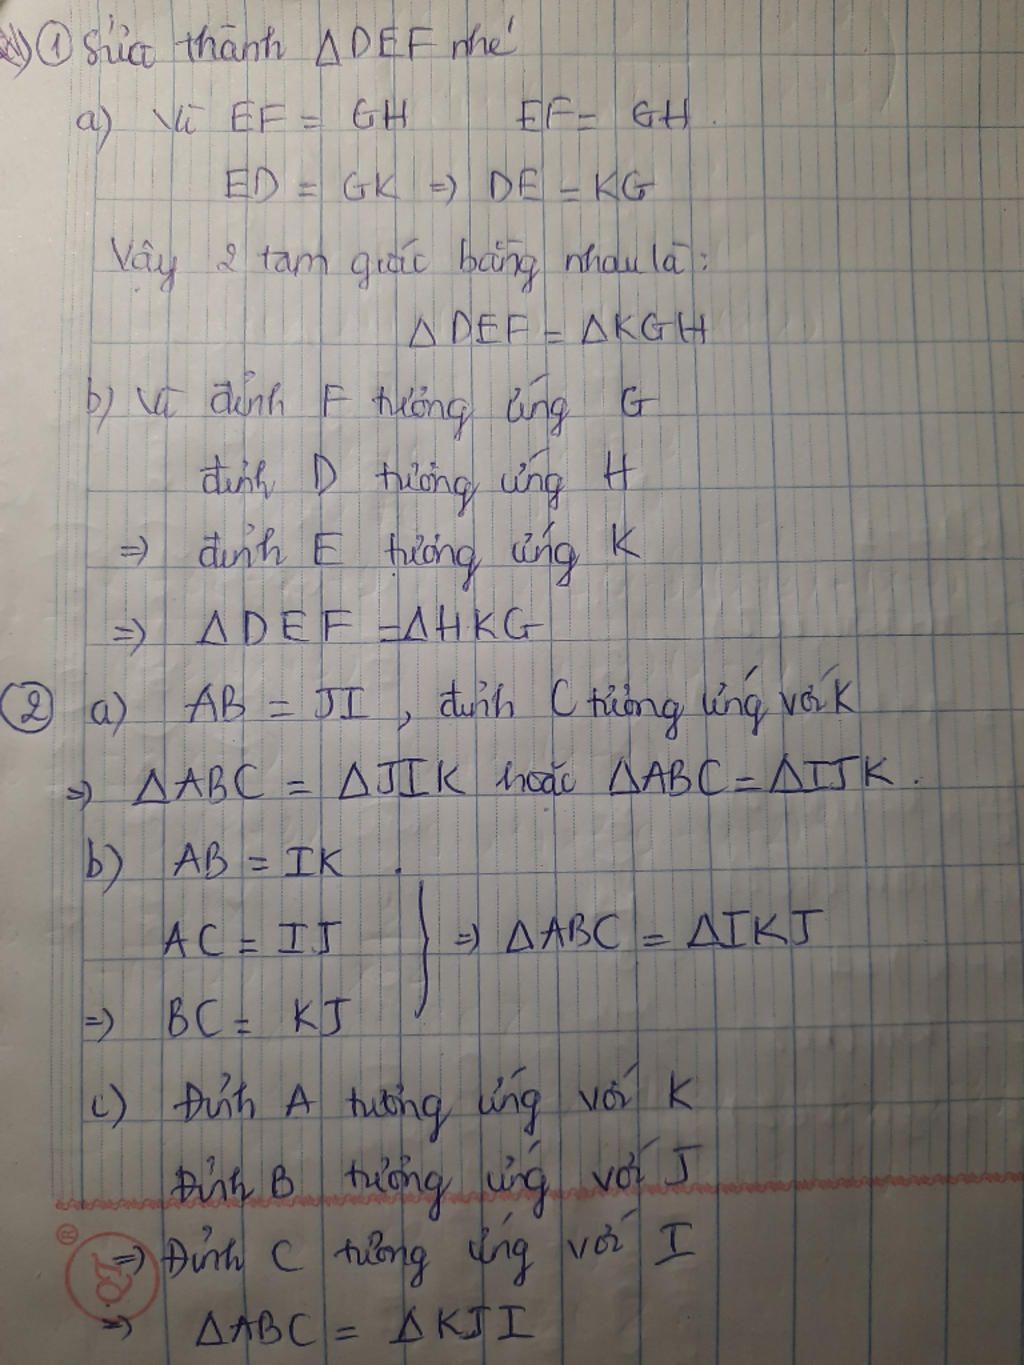 ① Sửa thành ΔDEF nhé
a) Vì EF = GH EF = GH.
ED = GK => DE = KG
Vậy 2 tam giác bằng nhau là:
ΔDEF = ΔKGH
b) Vì đỉnh F tương ứng G
đỉnh D tương ứng H
=> đỉnh E tương ứng K
=> ΔDEF = ΔHKG
② a) AB = JI, đỉnh C tương ứng với K
=> ΔABC = ΔJIK hoặc ΔABC = ΔIJK.
b) AB = IK.
AC = IJ } => ΔABC = ΔIKJ
=> BC = KJ
c) Đỉnh A tương ứng với K
Đỉnh B tương ứng với J
=> Đỉnh C tương ứng với I
=> ΔABC = ΔKJI